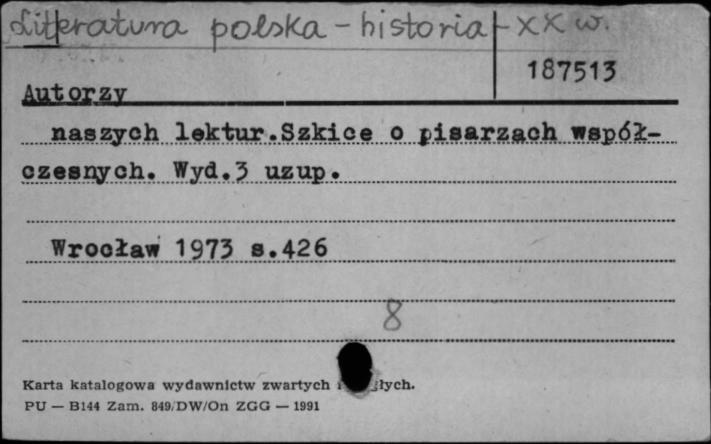 Literatura polska - historia - XX w.
187513
Autorzy
naszych lektur.Szkice o pisarzach współ-
czesnych. Wyd.3 uzup.
Wrocław 1973 s.426
8
Karta katalogowa wydawnictw zwartych
PU — B144 Zam. 849/DW/On ZGG — 1991